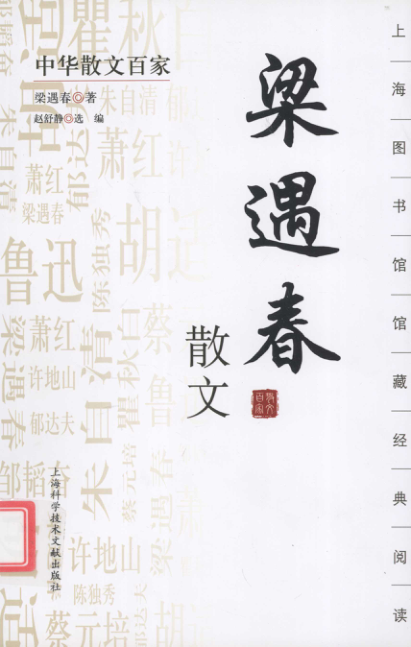 中华散文百家
梁遇春◎著
赵舒静◎选 编
梁遇春
散文
散文
百家
上海图书馆馆藏经典阅读
上海科学技术文献出版社
瞿秋
朱自清
许
萧红
郁达
梁遇春
陈独秀
胡适
鲁迅
萧红
许地山
郁达夫
梁遇春
朱自清
瞿秋白
蔡
蔡元培
梁遇春
邹韬奋
许地山
陈独秀
蔡元培